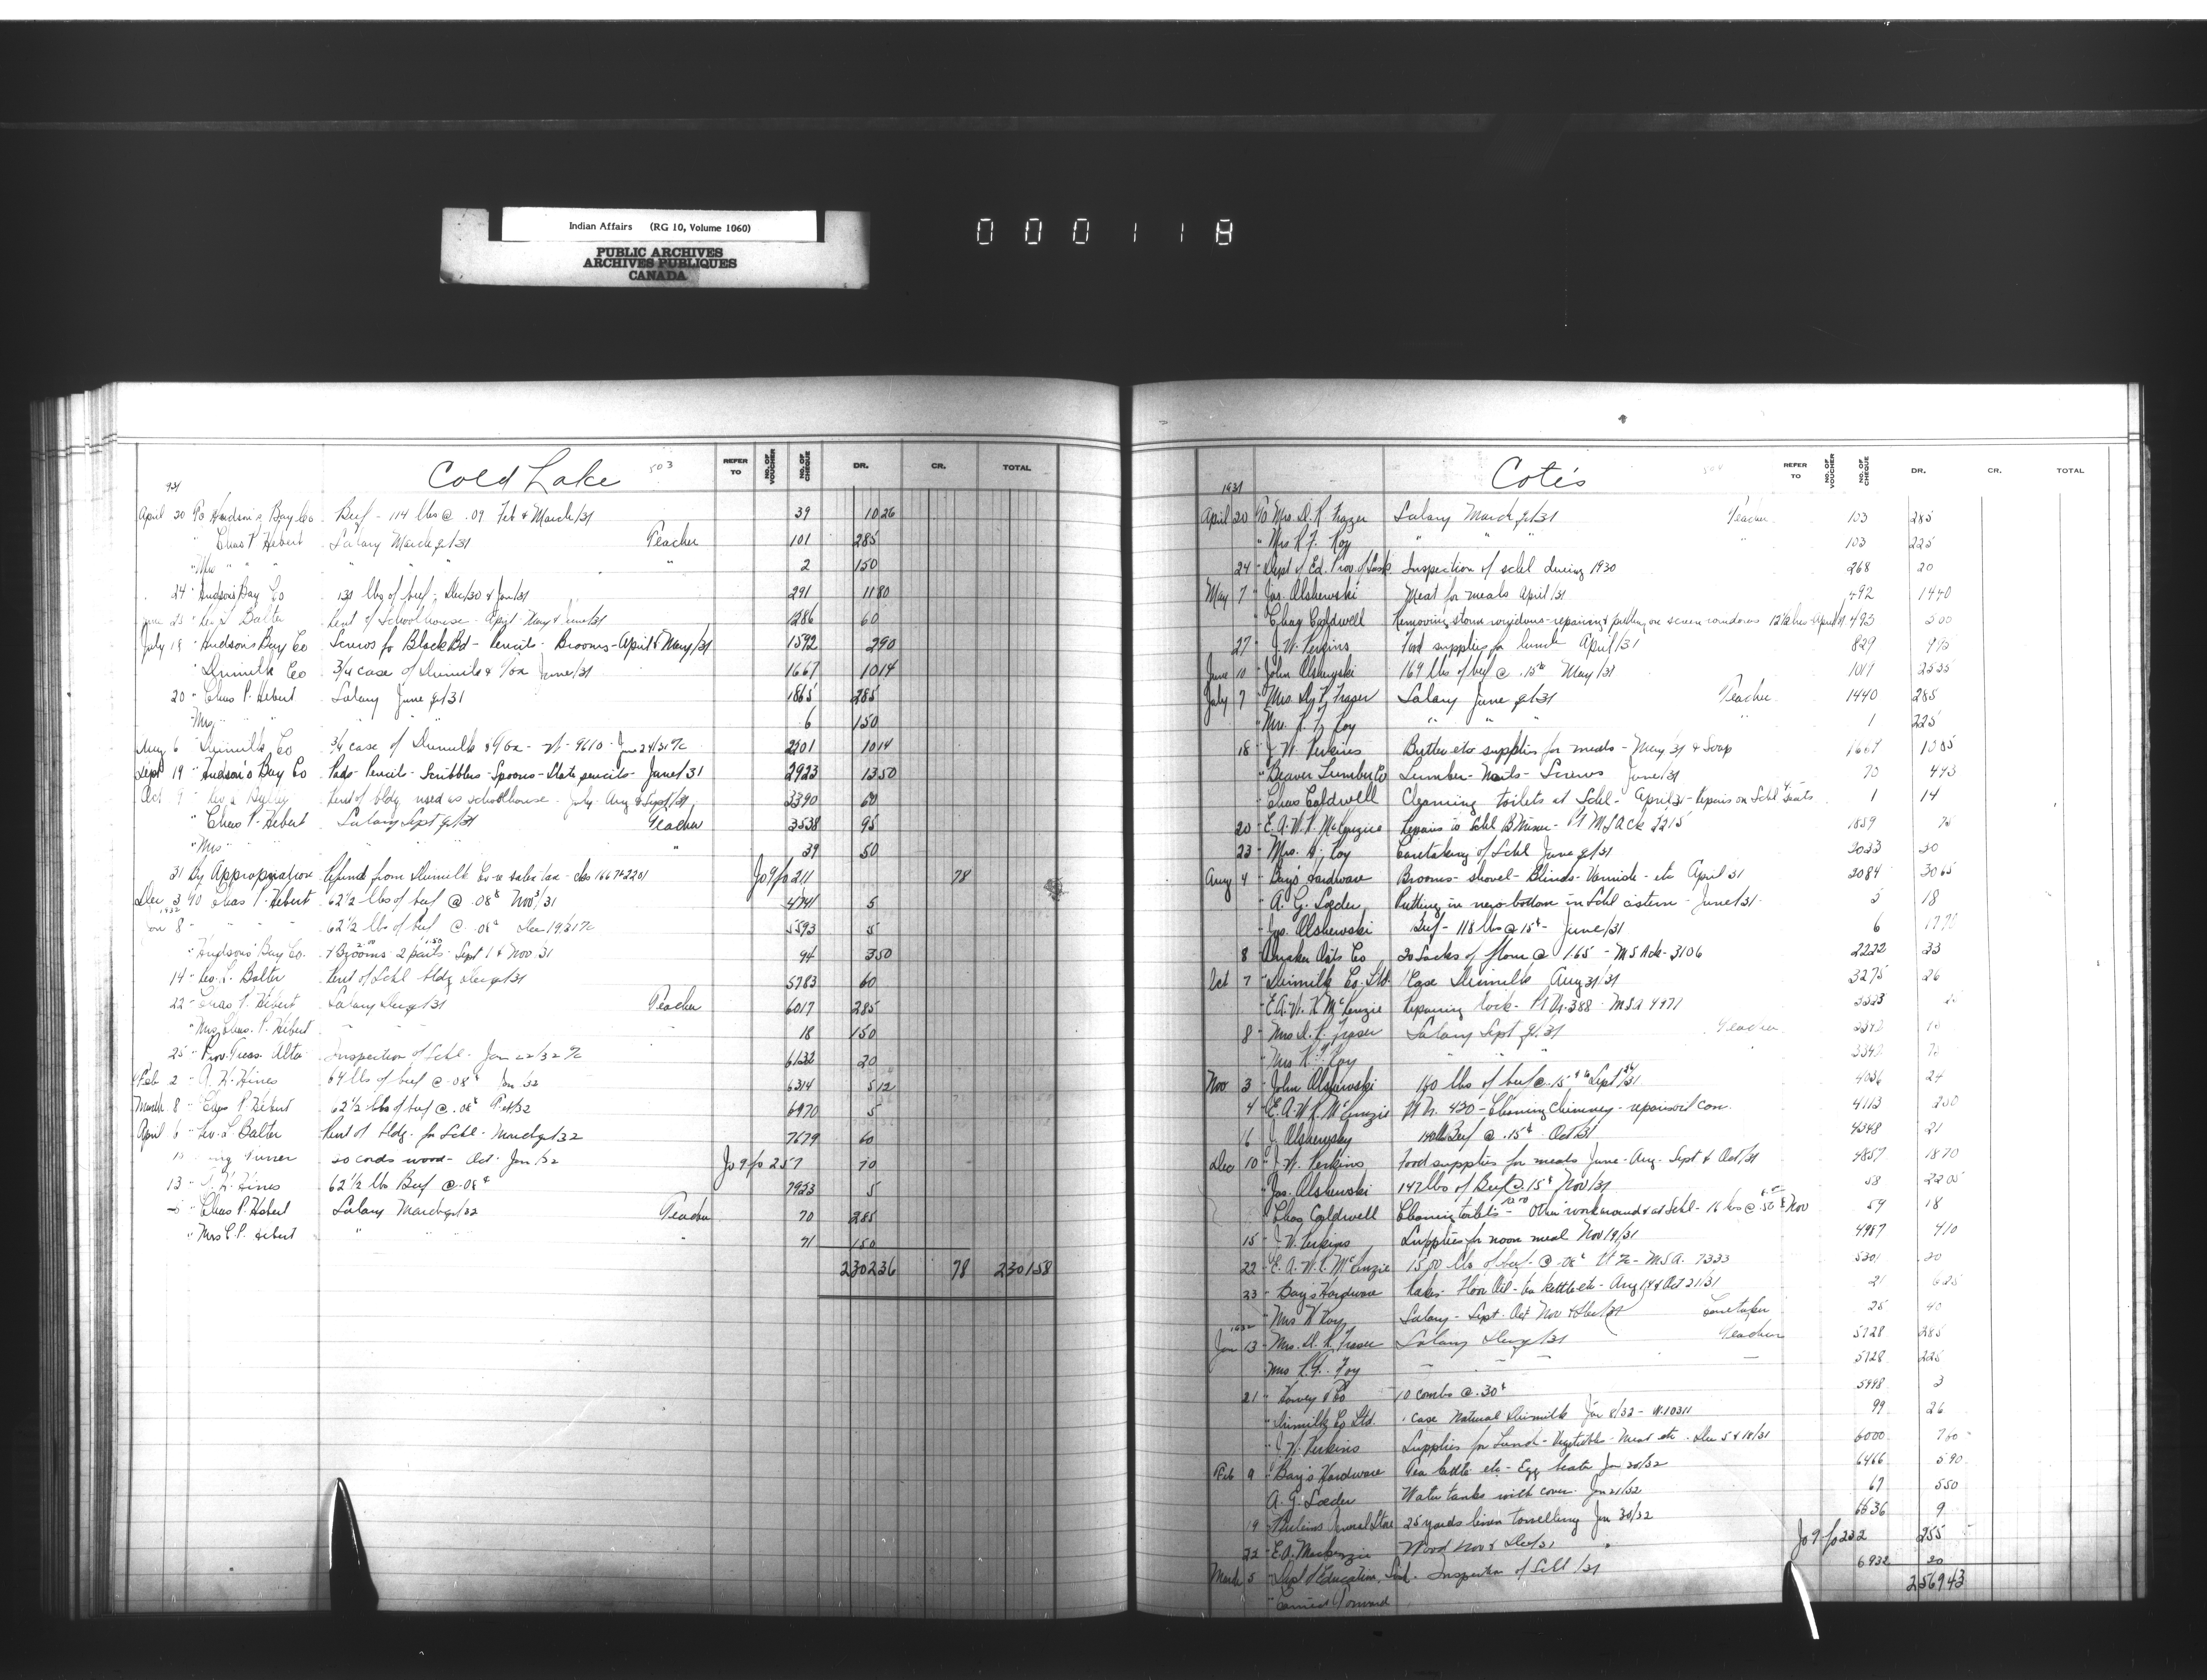 Indian Affairs (RG 10, Volume 1060)
PUBLIC ARCHIVES
ARCHIVES PUBLIQUES
CANADA
000118
Cold Lake 503
REFER TO NO. OF VOUCHER NO. OF CHEQUE DR. CR. TOTAL
931
April 20 To Hudson's Bay Co Beef - 114 lbs @ .09 Feb & March/31 39 10 26
" Chas P. Hebert Salary March qr/31 Teacher 101 285
" Mrs " " " " 2 150
24 " Hudson's Bay Co 131 lbs of beef - Dec/30 & Jan/31 291 11 80
June 25 Balter Rent of Schoolhouse - April May & June/31 1286 60
July 18 " Hudson's Bay Co Screws for Black Bd - Pencils - Brooms - April & May/31 1592 2 90
" Drimilk Co 3/4 case of Drimilk & June/31 1667 10 14
20 " Chas P. Hebert Salary June qr/31 1865 285
" Mrs " " " 6 150
Aug 6 " Drimilk Co 3/4 case of Drimilk - 9610 - June 24/31 2201 10 14
Sept 19 " Hudson's Bay Co Pads - Pencils - Scribblers - Spoons - Slate pencils - June/31 2923 13 50
Oct 9 " Rent of bldg used as schoolhouse - July - Aug & Sept/31 3390 60
" Chas P. Hebert Salary Sept qr/31 Teacher 3538 95
" Mrs " " 39 50
31 By Appropriation Refund from Drimilk Co re sales tax - chs 1667 & 2201 Jo 9 fo 211 78
Dec 3 To Chas P. Hebert 62 1/2 lbs of beef @ .08¢ Nov 3/31 4741 5
1932
Jan 8 " " 62 1/2 lbs of beef @ .08¢ Dec 19/31 5593 5
" Hudson's Bay Co. Brooms 2 pails - Sept 1 & Nov 31 94 3 50
14 " Balter Rent of Schl bldg Dec qr/31 5783 60
22 " Chas P. Hebert Salary Dec qr/31 Teacher 6017 285
" Mrs Chas. P. Hebert " " 18 150
25 " Prov. Treas. Alta Inspection of Schl - Jan 22/32 6132 20
Feb 2 " A. H. Hines 64 lbs of beef @ .08¢ Jan/32 6314 5 12
March 8 " Chas P. Hebert 62 1/2 lbs of beef @ .08¢ Feb/32 6970 5
April 6 " Balter Rent of bldg. for Schl - March qr/32 7679 60
Turner 20 cords wood - Oct - Jan/32 Jo 9 fo 257 70
13 " Hines 62 1/2 lbs Beef @ .08¢ 7923 5
" Chas P. Hebert Salary March qr/32 Teacher 70 285
" Mrs C. P. Hebert " " 71 150
2302 36 78 2301 58
Coté's 504
REFER TO NO. OF VOUCHER NO. OF CHEQUE DR. CR. TOTAL
1931
April 20 To Mrs. D. K. Frazer Salary March qr/31 Teacher 103 285
" Mrs R. F. Roy " " " " 103 225
24 " Dept of Ed. Prov. of Sask. Inspection of schl during 1930 268 20
May 7 " Jas. Olshewski Meat for meals April/31 492 14 40
" Chas Caldwell Removing storm windows - repairing & putting on screen windows 12 1/2 hrs April/31 493 5 00
27 " J. W. Perkins Food supplies for lunch April/31 829 9 15
June 10 " John Olshewski 169 lbs of beef @ .15¢ May/31 1017 25 35
July 7 " Mrs. D. K. Fraser Salary June qr/31 Teacher 1440 285
" Mrs. R. F. Roy " " " " 1 225
18 " J. W. Perkins Butter etc supplies for meals - May/31 & Soap 1669
" Beaver Lumber Co Lumber - Nails - Screws June/31 70 4 43
" Chas Caldwell Cleaning toilets at Schl - April/31 - Repairs on Schl seats 1 14
20 " E. A. W. R. McKenzie Repairs to Schl MS Ack 2215 1859 75
23 " Mrs. Roy Caretaking of Schl June qr/31 2033 30
Aug 4 " Bay's Hardware Brooms - shovel - Blinds - Varnish - etc April 31 2084 30 65
" A. G. Loeder Putting in new bottom in Schl cistern - June/31 5 18
" Jas. Olshewski Beef - 118 lbs @ 15¢ - June/31 6 17 70
8 " Quaker Oats Co 20 Sacks of flour @ 1.65 - MS Ack - 3106 2222 33
Oct 7 " Drimilk Co. Ltd. 1 Case Drimilk Aug 31/31 3275 26
" E. A. W. R. McKenzie Repairing lock - 388 - MSA 4971 3323
8 " Mrs D. K. Fraser Salary Sept qr/31 Teacher 3342
" Mrs R. F. Roy " " 3342 75
Nov 3 " John Olshewski 160 lbs of beef @ .15¢ Sept/31 4036 24
4 " E. A. W. R. McKenzie 430 - Cleaning chimney - repairs 4113 2 50
16 " J. Olshewsky 140 lbs Beef @ .15¢ Oct/31 4348 21
Dec 10 " J. W. Perkins Food supplies for meals June - Aug - Sept & Oct/31 4857 18 70
" Jas. Olshewski 147 lbs of Beef @ .15¢ Nov/31 58 22 05
" Chas Caldwell Cleaning toilets - Other work around & at Schl - 16 hrs @ .50¢ Nov 59 18
15 " J. W. Perkins Supplies for noon meal Nov 19/31 4987 4 10
22 " E. A. W. R. McKenzie lbs of beef @ .08¢ MSA. 7333 5301 20
23 " Bay's Hardware Rakes - Floor Oil - tea kettle etc - Aug 14 & Oct 21/31 21 6 25
" Mrs Roy Salary - Sept Oct Nov & Dec/31 Caretaker 25 40
1932
Jan 13 " Mrs. D. K. Fraser Salary Dec qr/31 Teacher 5728 285
" Mrs R. F. Roy " " " 5728 225
21 " Harvey & Co 10 combs @ .30¢ 5998 3
" Drimilk Co Ltd. 1 case Natural Drimilk Jan 8/32 - 10311 99 26
" J. W. Perkins Supplies for Lunch - Vegetable - Meat etc - Dec 5 & 18/31 6000 7 60
Feb 9 " Bay's Hardware Tea kettle etc - Egg beater Jan 30/32 6466 5 90
A. G. Loeder Water tanks with cover - Jan 21/32 67 5 50
19 " Perkins General Store 25 yards linen towelling Jan 30/32 6636 9
22 " E. A. Mackenzie Wood Nov & Dec/31 Jo 9 fo 232 255
March 5 " Dept of Education, Sask. Inspection of Schl/31 6932 20
" Carried Forward 2569 43